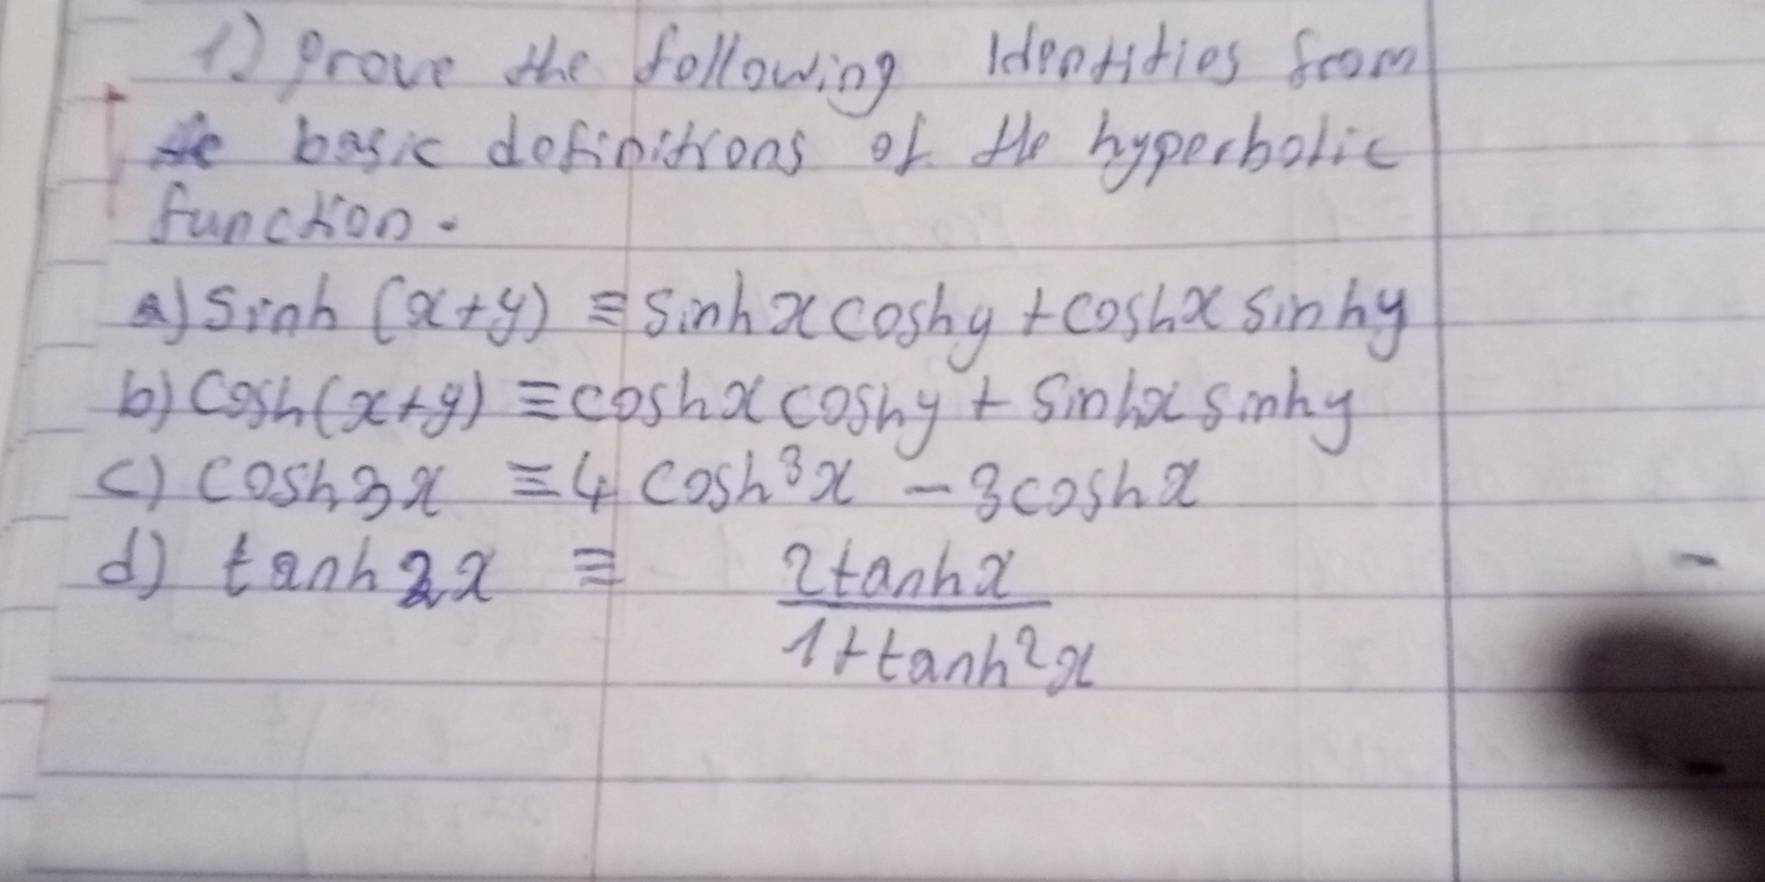 1) Prove the following Identities from
the basic definitions of the hyperbolic
function.
a) Sinh (x+y) ≡ sinh x cosh y + cosh x sinh y
b) Cosh(x+y) ≡ cosh x cosh y + Sinh x sinh y
c) cosh 3x ≡ 4 cosh³x - 3cosh x
d) tanh 2x ≡ 2tanh x
1+tanh²x